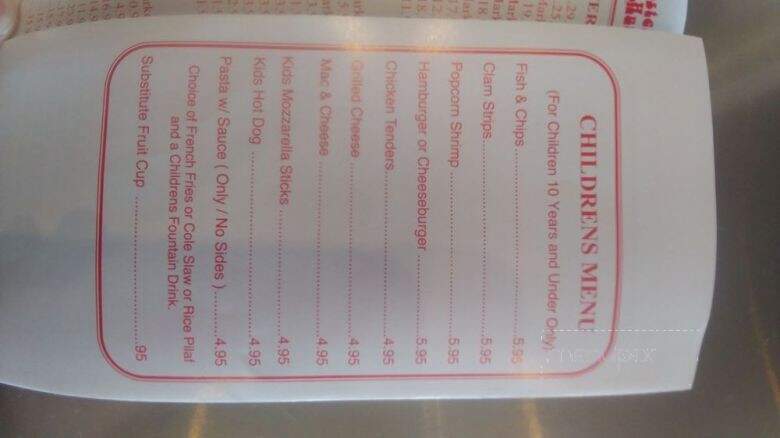 CHILDRENS MENU
(For Children 10 Years and Under Only)
Fish & Chips ........................ 5.95
Clam Strips ........................ 5.95
Popcorn Shrimp ........................ 5.95
Hamburger or Cheeseburger ............ 5.95
Chicken Tenders ........................ 4.95
Grilled Cheese ........................ 4.95
Mac & Cheese ........................ 4.95
Kids Mozzarella Sticks ........................ 4.95
Kids Hot Dog ........................ 4.95
Pasta w/ Sauce ( Only / No Sides ) ...... 4.95
Choice of French Fries or Cole Slaw or Rice Pilaf
and a Childrens Fountain Drink.
Substitute Fruit Cup ........................ .95